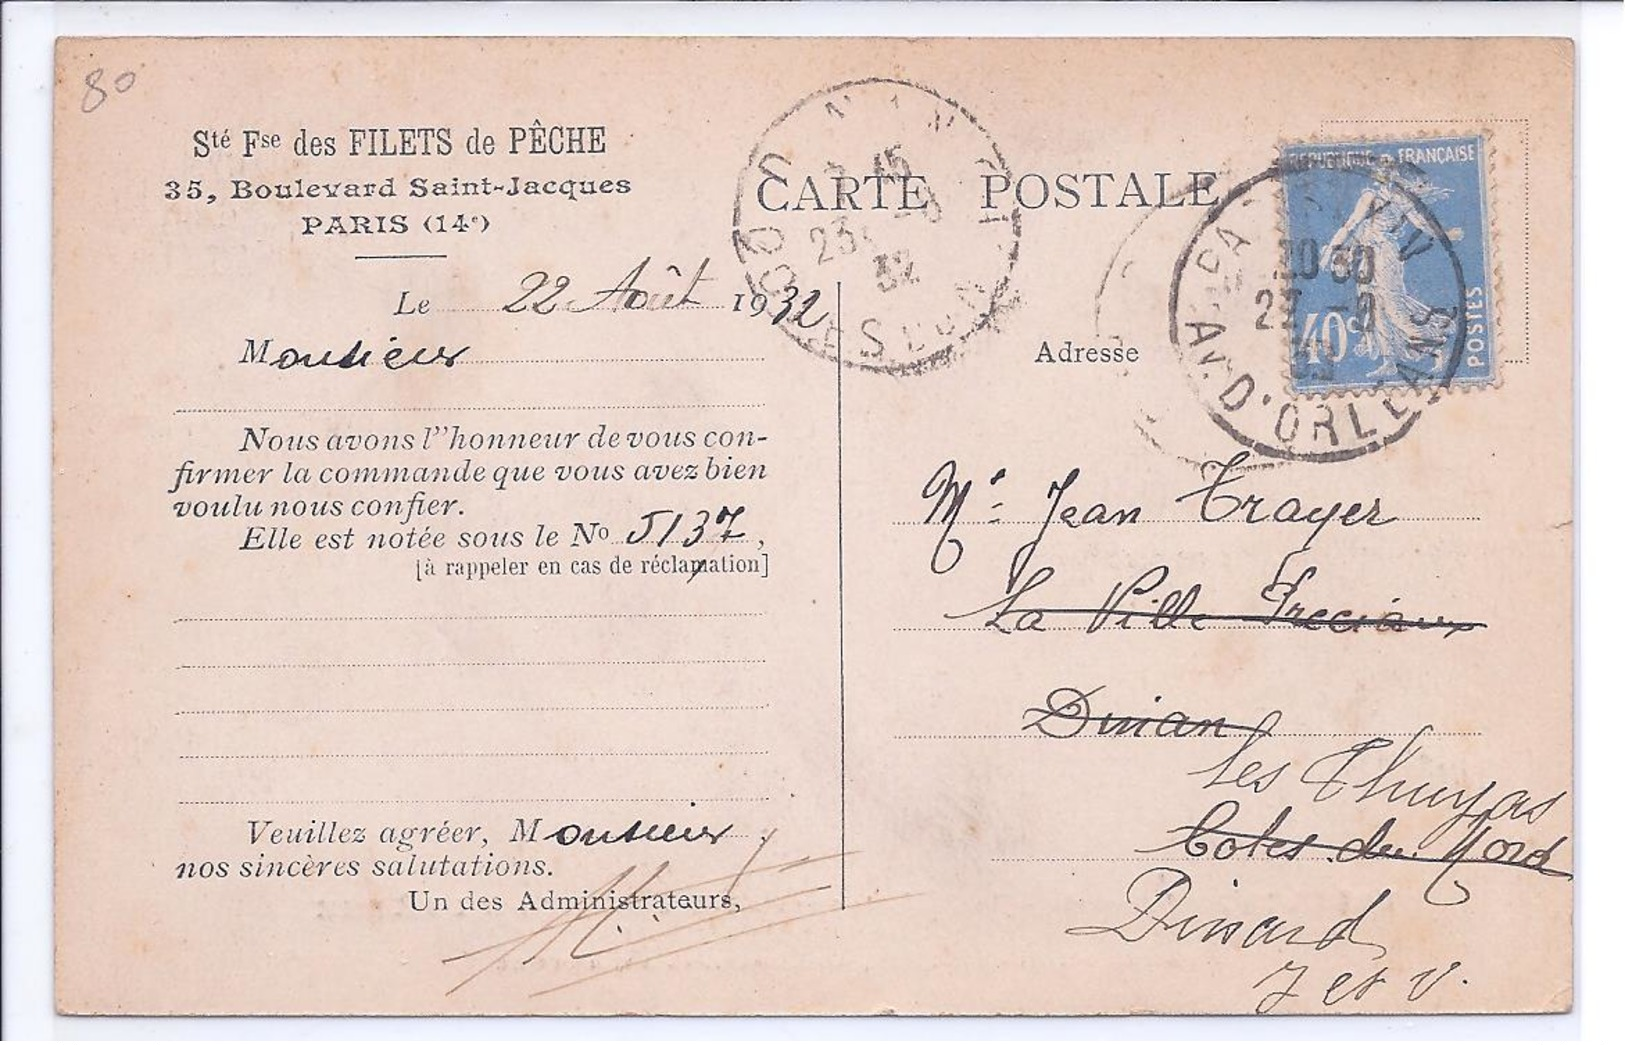 80
Sté Fse des FILETS de PÊCHE
35, Boulevard Saint-Jacques
PARIS (14e)
Le 22 Août 1932
Monsieur
Nous avons l''honneur de vous con-
firmer la commande que vous avez bien
voulu nous confier.
Elle est notée sous le No 5137,
[à rappeler en cas de réclamation]
Veuillez agréer, Monsieur,
nos sincères salutations.
Un des Administrateurs,
CARTE POSTALE
DINAN
15
23
32
COTES DU
REPUBLIQUE FRANÇAISE
40c
POSTES
PARIS XIV
20 30
AV. D'ORLEANS
Adresse
Mr Jean Trayer
La Ville
Dinan
Les Thuyas
Cotes du Nord
Dinard
I et V.